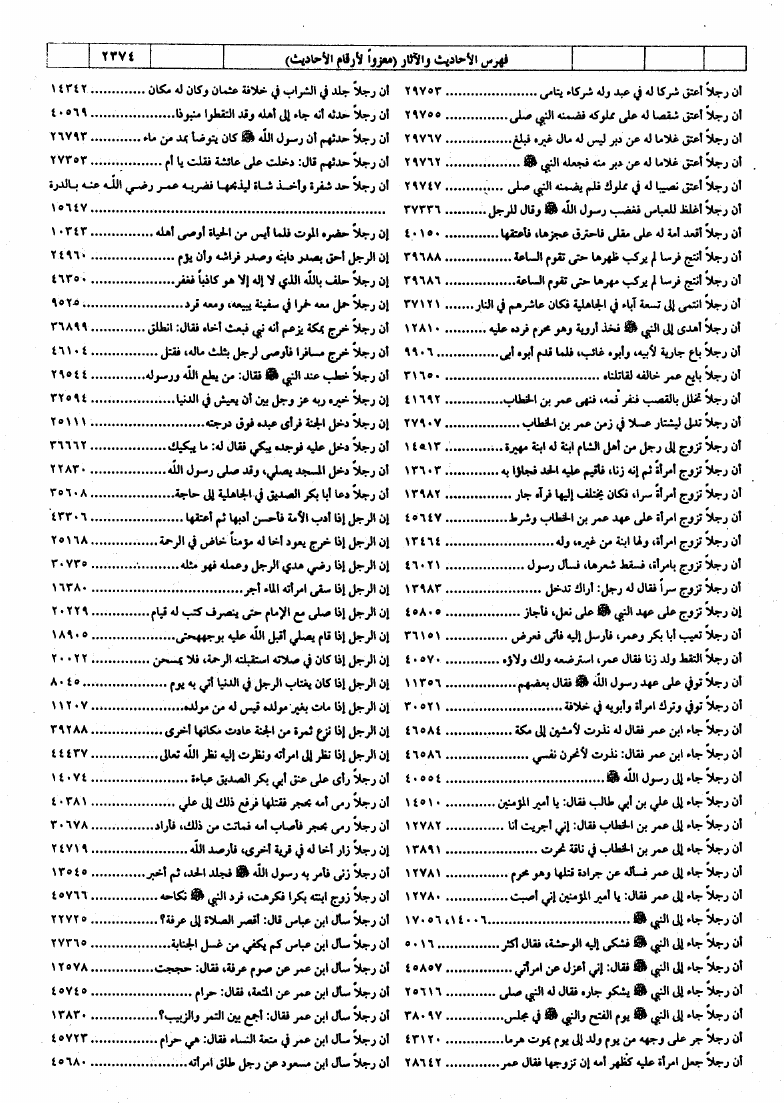 فهرس الأحاديث والآثار (معزواً لأرقام الأحاديث) ٢٣٧٤
أن رجلاً أعتق شركا له في عبد وله شركاء يتامى ٢٩٧٥٣
أن رجلاً أعتق شقصا له على مملوكه فضمنه النبي صلى ٢٩٧٥٥
أن رجلاً أعتق غلاما له عن دبر ليس له مال غيره فبلغ ٢٩٧٦٧
أن رجلاً أعتق غلاما له عن دبر منه فجعله النبي ﷺ ٢٩٧٦٢
أن رجلاً أعتق نصيبا له في مملوك فلم يضمنه النبي صلى ٢٩٧٤٧
أن رجلاً أغلظ للعباس فغضب رسول الله ﷺ وقال للرجل ٣٧٣٣٦
أن رجلاً أقعد أمة له على مقلى فاحترق عجزها، فأعتقها ٤٠١٥٠
أن رجلاً أنتج فرسا لم يركب ظهرها حتى تقوم الساعة ٣٩٦٨٨
أن رجلاً أنتج فرسا لم يركب مهرها حتى تقوم الساعة ٣٩٦٨٦
أن رجلاً انتمى إلى تسعة آباء في الجاهلية فكان عاشرهم في النار ٣٧١٢١
أن رجلاً أهدى إلى النبي ﷺ فخذ أروية وهو محرم فرده عليه ١٢٨١٠
أن رجلاً باع جارية لأبيه، وأبوه غائب، فلما قدم أبوه أبى ٩٩٠٦
أن رجلاً بايع عمر خالفه لقاتلناه ٣١٦٥٠
أن رجلاً تخلل بالقصب فنفر فمه، فنهى عمر بن الخطاب ٤١٦٩٢
أن رجلاً تدلى ليشتار عسلا في زمن عمر بن الخطاب ٢٧٩٠٧
أن رجلاً تزوج إلى رجل من أهل الشام ابنة له ابنة مهيرة ١٤٥١٣
أن رجلاً تزوج امرأة ثم إنه زنا، فأقيم عليه الحد فجاؤا به ١٣٦٠٣
أن رجلاً تزوج امرأة سرا، فكان يختلف إليها فرآه جار ١٣٩٨٢
أن رجلاً تزوج امرأة على عهد عمر بن الخطاب وشرط ٤٥٦٤٧
أن رجلاً تزوج امرأة، ولها ابنة من غيره، وله ١٣٤٦٤
أن رجلاً تزوج بامرأة، فسقط شعرها، فسأل رسول ٤٦٠٢١
أن رجلاً تزوج سراً فقال له رجل: أراك تدخل ١٣٩٨٣
إن رجلاً تزوج على عهد النبي ﷺ على نعل، فأجاز ٤٥٨٠٥
أن رجلاً تعيب أبا بكر وعمر، فأرسل إليه فأتى فعرض ٣٦١٥١
أن رجلاً التقط ولد زنا فقال عمر، استرضعه ولك ولاؤه ٤٠٥٧٠
أن رجلاً توفي على عهد رسول الله ﷺ فقال بعضهم ١١٣٥٦
أن رجلاً توفي وترك امرأة وأبويه في خلافة ٣٠٥٢١
أن رجلاً جاء ابن عمر فقال له نذرت لأمشين إلى مكة ٤٦٥٨٤
أن رجلاً جاء ابن عمر فقال: نذرت لأنحرن نفسي ٤٦٥٨٦
أن رجلاً جاء إلى رسول الله ﷺ ٤٠٥٥٤
أن رجلاً جاء إلى علي بن أبي طالب فقال: يا أمير المؤمنين ١٤٥١٠
أن رجلاً جاء إلى عمر بن الخطاب فقال: إني أجريت أنا ١٢٧٨٢
أن رجلاً جاء إلى عمر بن الخطاب في ناقة نحرت ١٣٨٩١
أن رجلاً جاء إلى عمر فسأله عن جرادة قتلها وهو محرم ١٢٧٨١
أن رجلاً جاء إلى عمر فقال: يا أمير المؤمنين إني أصبت ١٢٧٨٠
أن رجلاً جاء إلى النبي ﷺ ١٤٠٠٦، ١٧٠٥٦
أن رجلاً جاء إلى النبي ﷺ فشكى إليه الوحشة، فقال أكثر ٥٠١٦
أن رجلاً جاء إلى النبي ﷺ فقال: إني أعزل عن امرأتي ٤٥٨٥٧
أن رجلاً جاء إلى النبي ﷺ يشكو جاره فقال له النبي صلى ٢٥٦١٦
أن رجلاً جاء إلى النبي ﷺ يوم الفتح والنبي ﷺ في مجلس ٣٨٠٩٧
أن رجلاً جر على وجهه من يوم ولد إلى يوم يموت هرما ٤٣١٢٠
أن رجلاً جعل امرأة عليه كظهر أمه إن تزوجها فقال عمر ٢٨٦٤٢
أن رجلاً جلد في الشراب في خلافة عثمان وكان له مكان ١٤٣٤٢
أن رجلاً حدثه أنه جاء إلى أهله وقد التقطوا منبوذا ٤٠٥٦٩
أن رجلاً حدثهم أن رسول الله ﷺ كان يتوضأ بمد من ماء ٢٦٧٩٣
أن رجلاً حدثهم قال: دخلت على عائشة فقلت يا أم ٢٧٣٥٣
أن رجلاً حد شفرة وأخذ شاة ليذبحها فضربه عمر رضي الله عنه بالدرة
١٥٦٤٧
إن رجلاً حضره الموت فلما أيس من الحياة أوصى أهله ١٠٣٤٣
إن الرجل أحق بصدر دابته وصدر فراشه وأن يؤم ٢٤٩٦٠
إن رجلاً حلف بالله الذي لا إله إلا هو كاذباً فغفر ٤٦٣٥٠
إن رجلاً حمل معه خمرا في سفينة يبيعه، ومعه قرد ٩٥٢٥
أن رجلاً خرج بمكة يزعم أنه نبي فبعث أخاه فقال: انطلق ٣٦٨٩٩
أن رجلاً خرج مسافرا فأوصى لرجل بثلث ماله، فقتل ٤٦١٠٤
أن رجلاً خطب عند النبي ﷺ فقال: من يطع الله ورسوله ٢٩٥٤٤
إن رجلاً خيره ربه عز وجل بين أن يعيش في الدنيا ٣٢٥٩٤
إن رجلاً دخل الجنة فرأى عبده فوق درجته ٢٥١١١
أن رجلاً دخل عليه فوجده يبكي فقال له: ما يبكيك ٣٦٦٦٢
أن رجلاً دخل المسجد يصلي، وقد صلى رسول الله ٢٢٨٣٠
أن رجلاً دعا أبا بكر الصديق في الجاهلية إلى حاجة ٣٥٦٠٨
إن الرجل إذا أدب الأمة فأحسن أدبها ثم أعتقها ٤٣٣٠٦
إن الرجل إذا خرج يعود أخا له مؤمناً خاض في الرحمة ٢٥١٦٨
إن الرجل إذا رضي هدي الرجل وعمله فهو مثله ٣٠٧٣٥
إن الرجل إذا سقى امرأته الماء أجر ١٦٣٨٠
إن الرجل إذا صلى مع الإمام حتى ينصرف كتب له قيام ٢٠٢٢٩
إن الرجل إذا قام يصلي أقبل الله عليه بوجههحتى ١٨٩٠٥
إن الرجل إذا كان في صلاته استقبلته الرحمة، فلا يمسحن ٢٠٠٢٢
إن الرجل إذا كان يغتاب الرجل في الدنيا أتي به يوم ٨٠٤٥
إن الرجل إذا مات بغير مولده قيس له من مولده ١١٢٠٧
إن الرجل إذا نزع ثمرة من الجنة عادت مكانها أخرى ٣٩٢٨٨
إن الرجل إذا نظر إلى امرأته ونظرت إليه نظر الله تعالى ٤٤٤٣٧
أن رجلاً رأى على عنق أبي بكر الصديق عباءة ١٤٠٧٤
أن رجلاً رمى أمه بحجر فقتلها فرفع ذلك إلى علي ٤٠٣٨١
أن رجلاً رمى بحجر فأصاب أمه فماتت من ذلك، فأراد ٣٠٦٧٨
إن رجلاً زار أخا له في قرية أخرى، فأرصد الله ٢٤٧١٩
أن رجلاً زنى فأمر به رسول الله ﷺ فجلد الحد، ثم أخبر ١٣٥٤٥
أن رجلاً زوج ابنته بكرا فكرهت، فرد النبي ﷺ نكاحه ٤٥٧٦٦
أن رجلاً سأل ابن عباس قال: أقصر الصلاة إلى عرفة؟ ٢٢٧٢٥
أن رجلاً سأل ابن عباس كم يكفي من غسل الجنابة ٢٧٣٦٥
أن رجلاً سأل ابن عمر عن صوم عرفة، فقال: حججت ١٢٥٧٨
أن رجلاً سأل ابن عمر عن المتعة، فقال: حرام ٤٥٧٤٥
أن رجلاً سأل ابن عمر فقال: أجمع بين التمر والزبيب؟ ١٣٨٣٠
أن رجلاً سأل ابن عمر في متعة النساء فقال: هي حرام ٤٥٧٢٣
أن رجلاً سأل ابن مسعود عن رجل طلق امرأته ٤٥٦٨٠